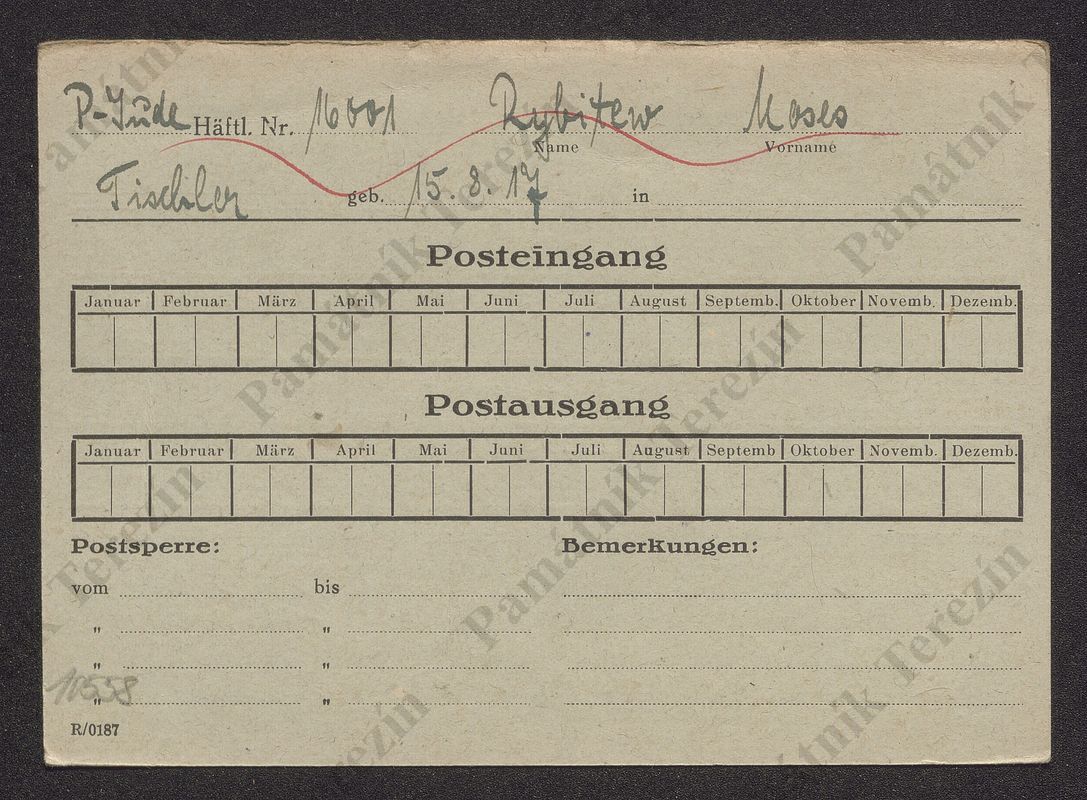 P-Jude Häftl. Nr. 16001 Rybitew Moses
Name Vorname
Tischler geb. 15. 8. 17 in
Posteingang
Januar Februar März April Mai Juni Juli August Septemb. Oktober Novemb. Dezemb.
Postausgang
Januar Februar März April Mai Juni Juli August Septemb Oktober Novemb. Dezemb.
Postsperre: Bemerkungen:
vom bis
" "
" "
" "
10558
R/0187
Památník Terezín